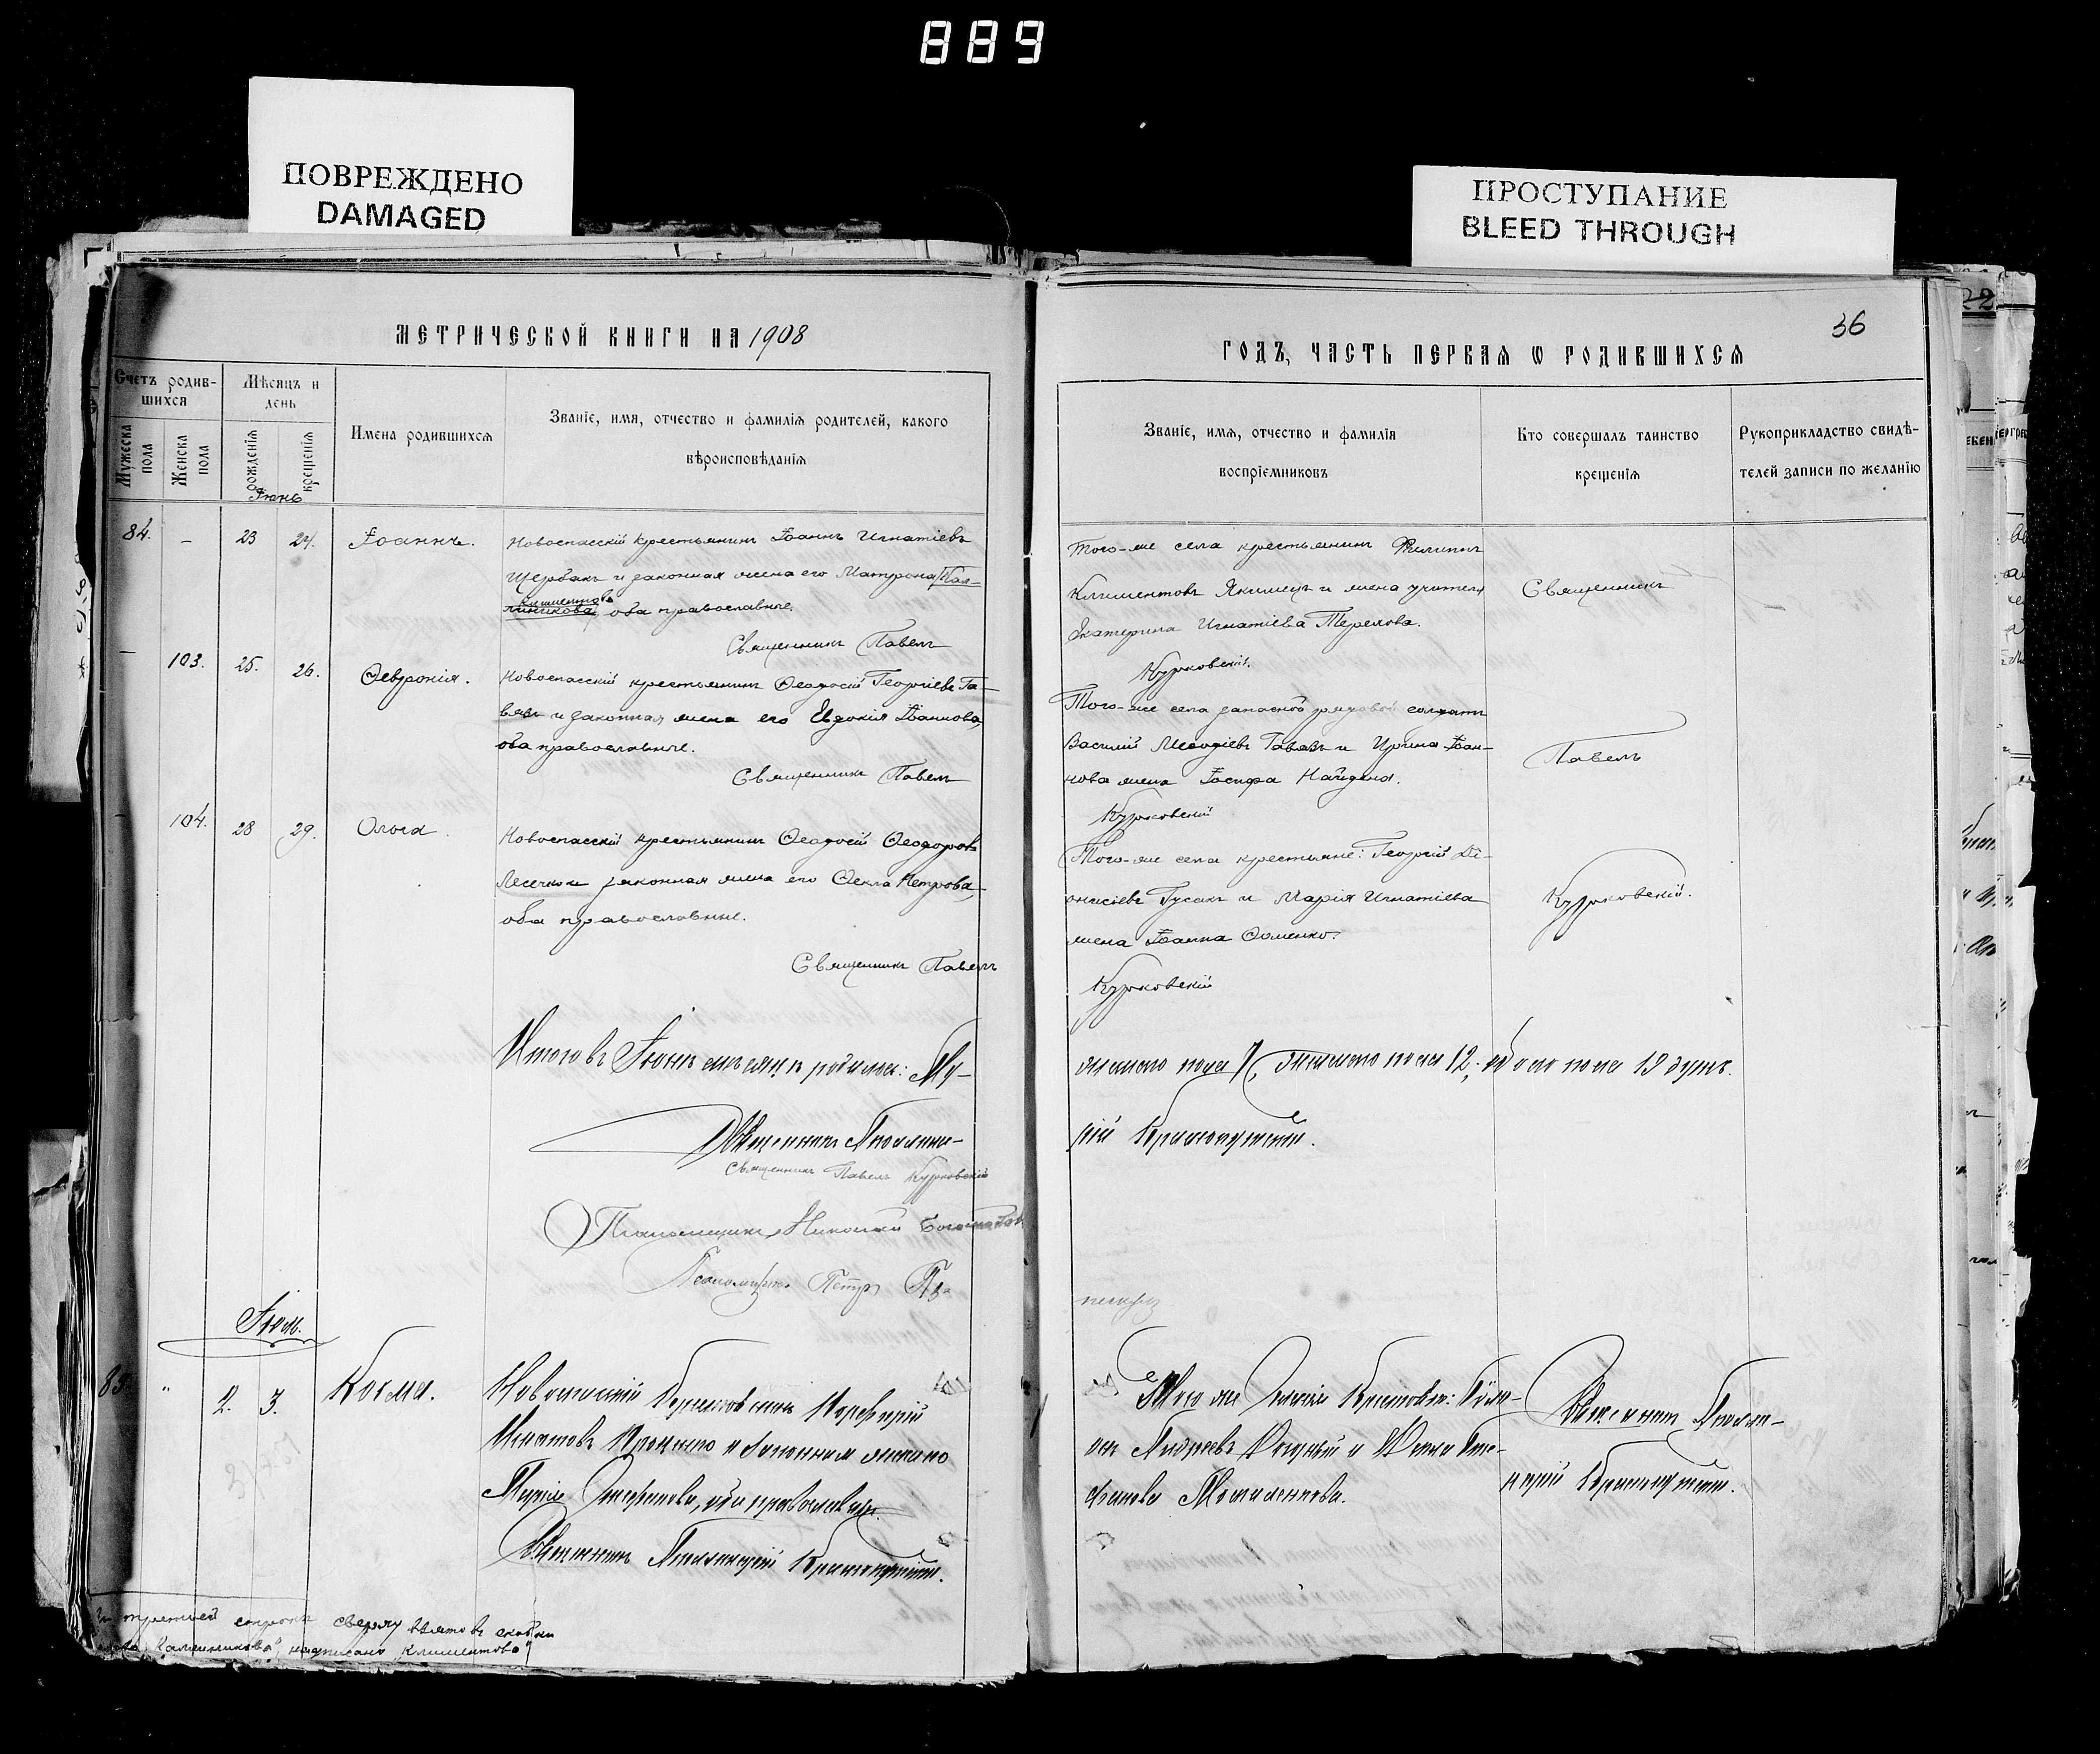 889
ПОВРЕЖДЕНО
DAMAGED
ПРОСТУПАНИЕ
BLEED THROUGH
МЕТРИЧЕСКОЙ КНИГИ НА 1908
Счетъ родив-
шихся
Мѣсяцъ и
день
Имена родившихся
Званіе, имя, отчество и фамилія родителей, какого
вѣроисповѣданія
Мужеска
пола
Женска
пола
рожденія
крещенія
Іюнь
84. - 23 24. Іоаннъ.
Новоспасскій крестьянинъ Іоаннъ Игнатіевъ
Щербакъ и законная жена его Матрона Кал-
климентова
линикова, оба православные.
Священникъ Павелъ
— 103. 25. 26. Ѳевронія.
Новоспасскій крестьянинъ Ѳеодосій Георгіевъ Га-
вязъ и законная жена его Евдокія Іоаннова,
оба православные.
Священникъ Павелъ
- 104. 28 29. Ольга.
Новоспасскій крестьянинъ Ѳеодосій Ѳеодоровъ
и законная жена его Ѳекла Петрова,
оба православные.
Священникъ Павелъ
Итого въ Іюнѣ мѣсяцѣ родилось: Му-
Священникъ
Священникъ Павелъ Курковскій
Псаломщикъ Николай
Псаломщикъ Петръ
Іюль.
85 " 2. 3. Косма.
Новоспасскій Крестьянинъ Порфирій
Игнатовъ и законная жена его
Марія оба православные.
Священникъ
На третьей строкѣ сверху взято въ скобки
слово „Каллиникова", надписано „Климентова"
36
ГОДЪ, ЧАСТЬ ПЕРВАЯ Ѡ РОДИВШИХСЯ
Званіе, имя, отчество и фамилія
воспріемниковъ
Кто совершалъ таинство
крещенія
Рукоприкладство свидѣ-
телей записи по желанію
Того-же села крестьянинъ Филиппъ
Климентовъ Якимецъ и жена учителя
Екатерина Игнатіева Терехова.
Курковскій.
Того-же села запасной рядовой солдатъ
Василій Меѳодіевъ Гавязъ и Ирина Іоан-
нова жена Іосифа Найдена.
Курковскій
Того-же села крестьяне: Георгій Ді-
онисіевъ Гусакъ и Марія Игнатіева
жена Іоанна Ѳоменко.
Курковскій
Священникъ
Павелъ
Курковскій.
жескаго пола 7, Женскаго пола 12, обоего пола 19 душъ.
рій
Того же Села Крестьяне:
Андреевъ и
фанова
Священникъ